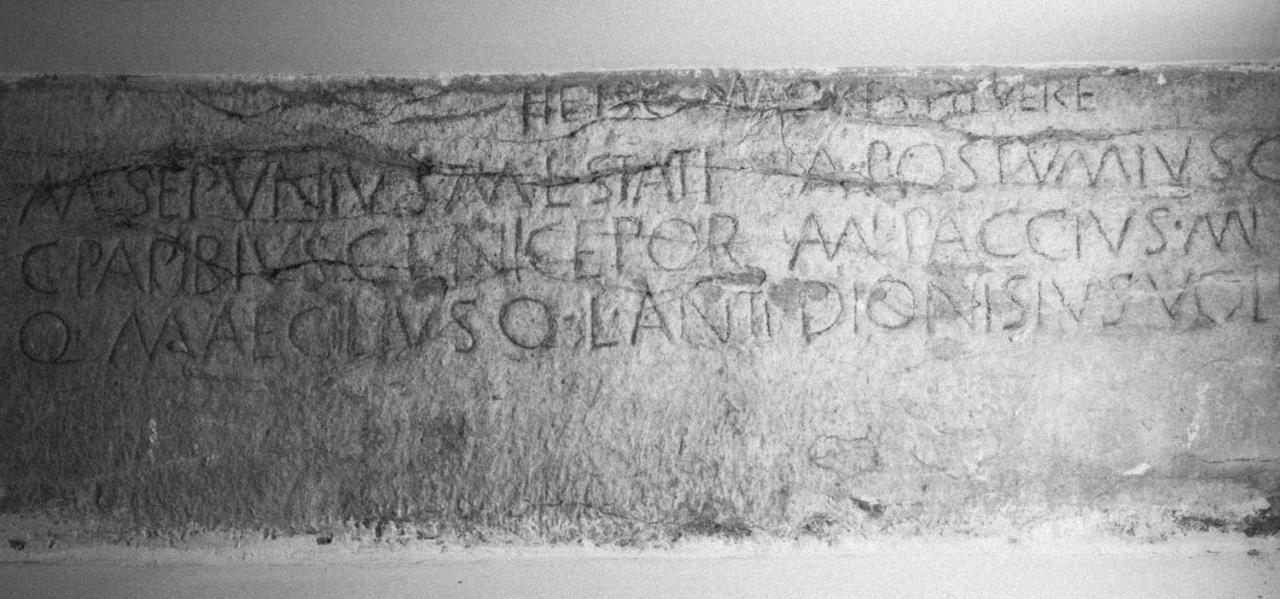 HEISC MAG
M·SEPVNIVS·M·L·STATI A·POSTVMIVS C
C·PAPIRIVS C·L·NICEPOR M·PACCIVS·M
Q·MAECILIVS Q·L·ANTI DIONISIVS VOL